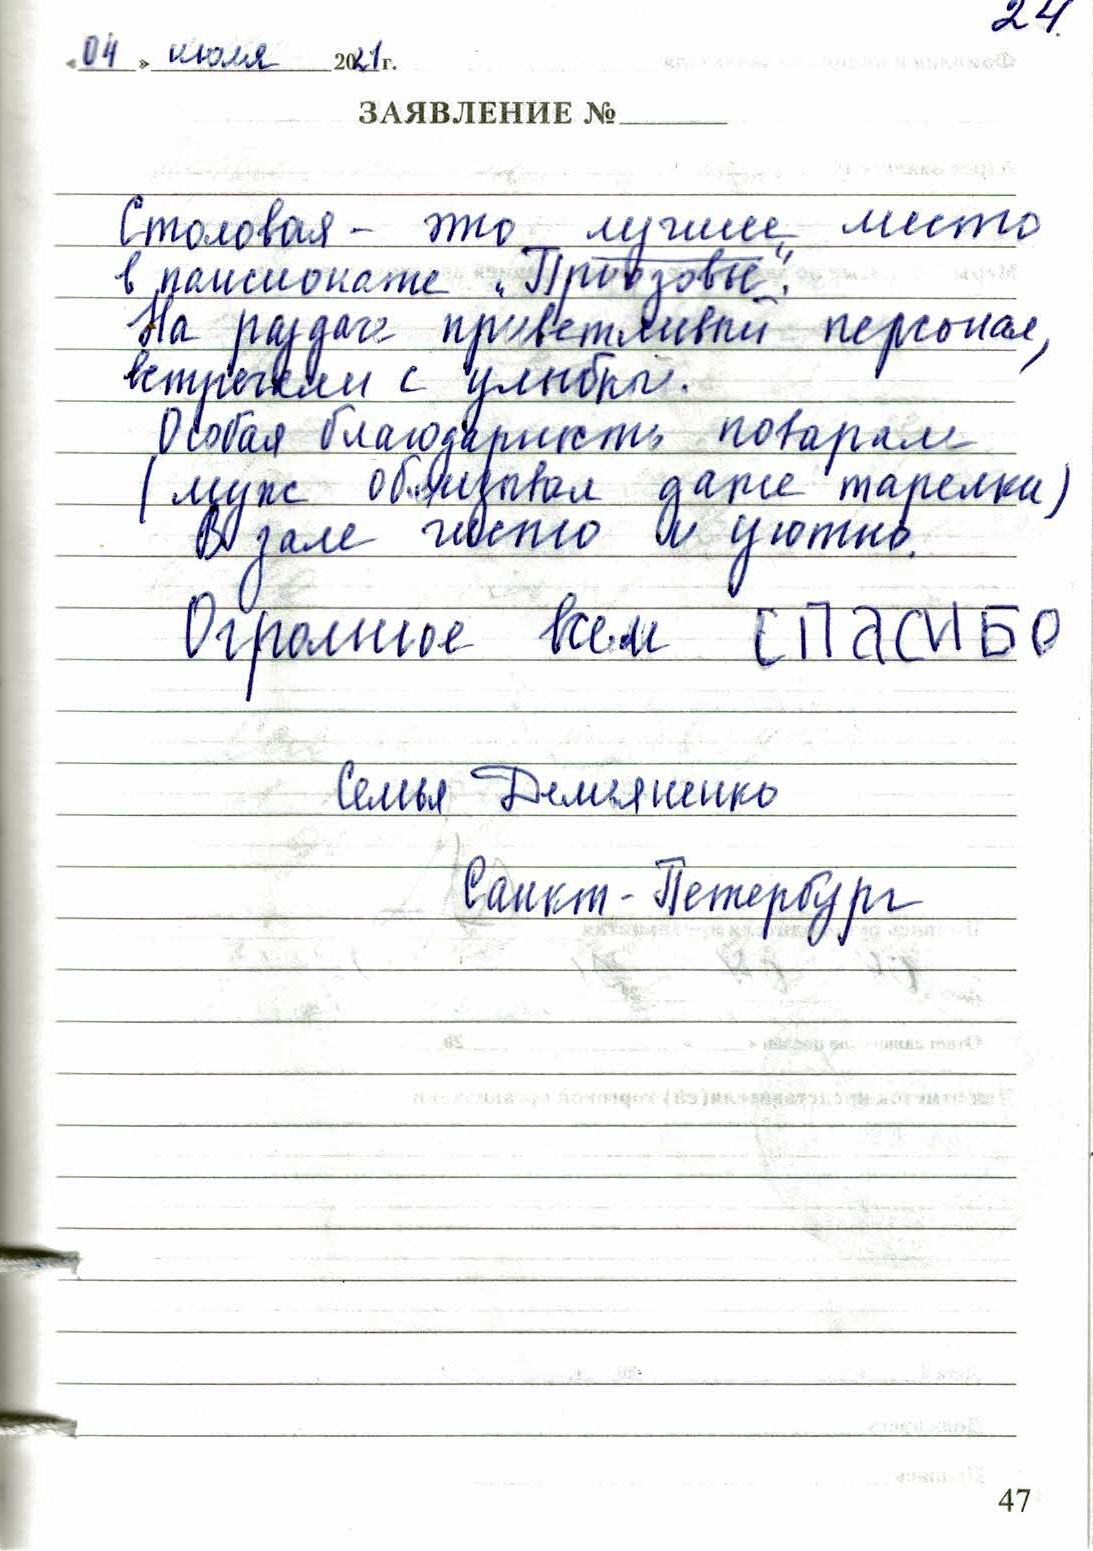 24.
«04» июля 2021г.
ЗАЯВЛЕНИЕ №
Столовая - это лучшее место
в пансионате "Приозовье".
На раздаче приветливый персонал,
встречали с улыбкы.
Особая благодарность поварам
(муж облизывал даже тарелки)
В зале чисто и уютно.
Огромное всем СПАСИБО
Семья Демьяненко
Санкт-Петербург
47